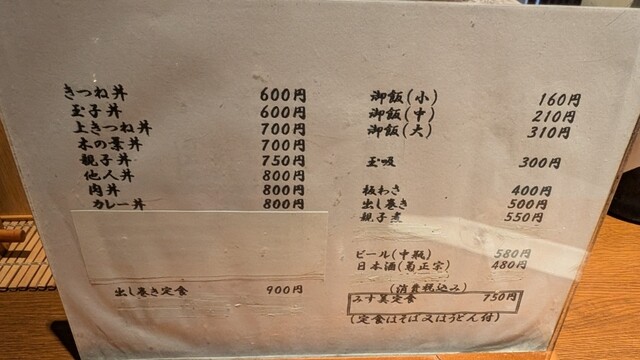 きつね丼 600円
玉子丼 600円
上きつね丼 700円
木の葉丼 700円
親子丼 750円
他人丼 800円
肉丼 800円
カレー丼 800円
出し巻き定食 900円
御飯(小) 160円
御飯(中) 210円
御飯(大) 310円
玉吸 300円
板わさ 400円
出し巻き 500円
親子煮 550円
ビール(中瓶) 580円
日本酒(菊正宗) 480円
(消費税込み)
みす美定食 750円
(定食はそば又はうどん付)